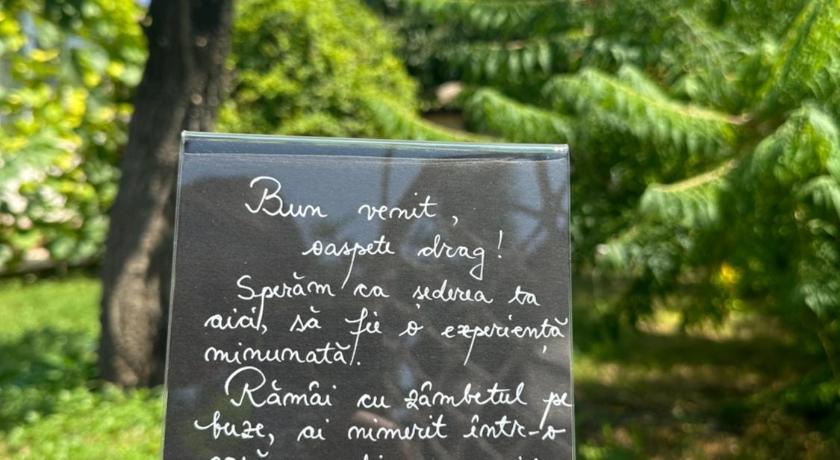 Bun venit,
oaspete drag!
Sperăm ca șederea ta
aici, să fie o experiență
minunată!
Rămâi cu zâmbetul pe
buze, ai nimerit într-o